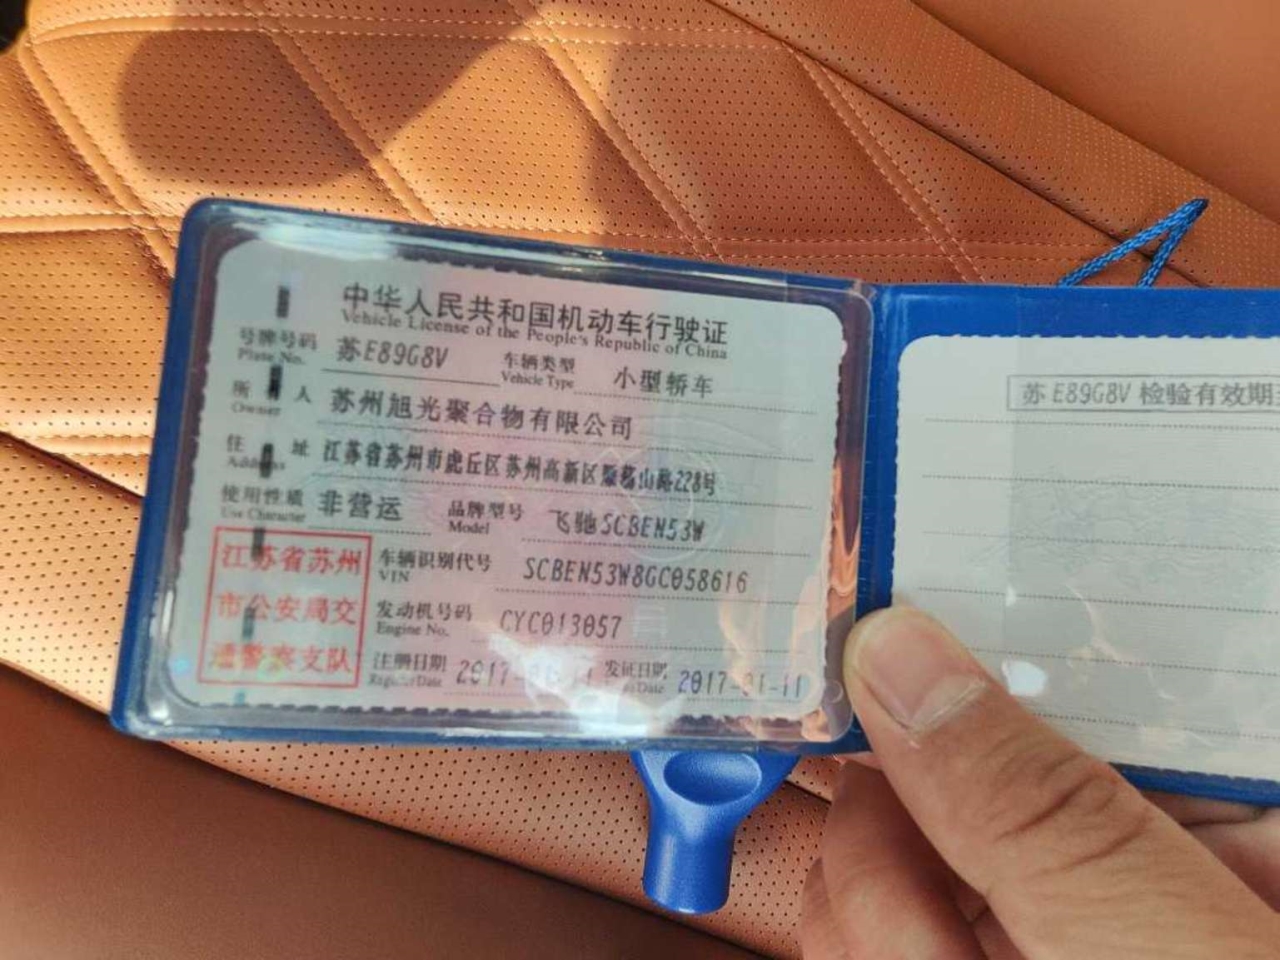 中华人民共和国机动车行驶证
Vehicle License of the People's Republic of China
号牌号码 苏E89G8V 车辆类型 小型轿车
Plate No. Vehicle Type
所 人 苏州旭光聚合物有限公司
Owner
住 址 江苏省苏州市虎丘区苏州高新区 山路228号
Address
使用性质 非营运 品牌型号 飞驰SCBEN53W
Use Character Model
江苏省苏州
市公安局交
通警察支队
车辆识别代号 SCBEN53W8GC058616
VIN
发动机号码 CYC013057
Engine No.
注册日期 2017-01-11 发证日期 2017-01-11
Register Date Issue Date
苏E89G8V 检验有效期